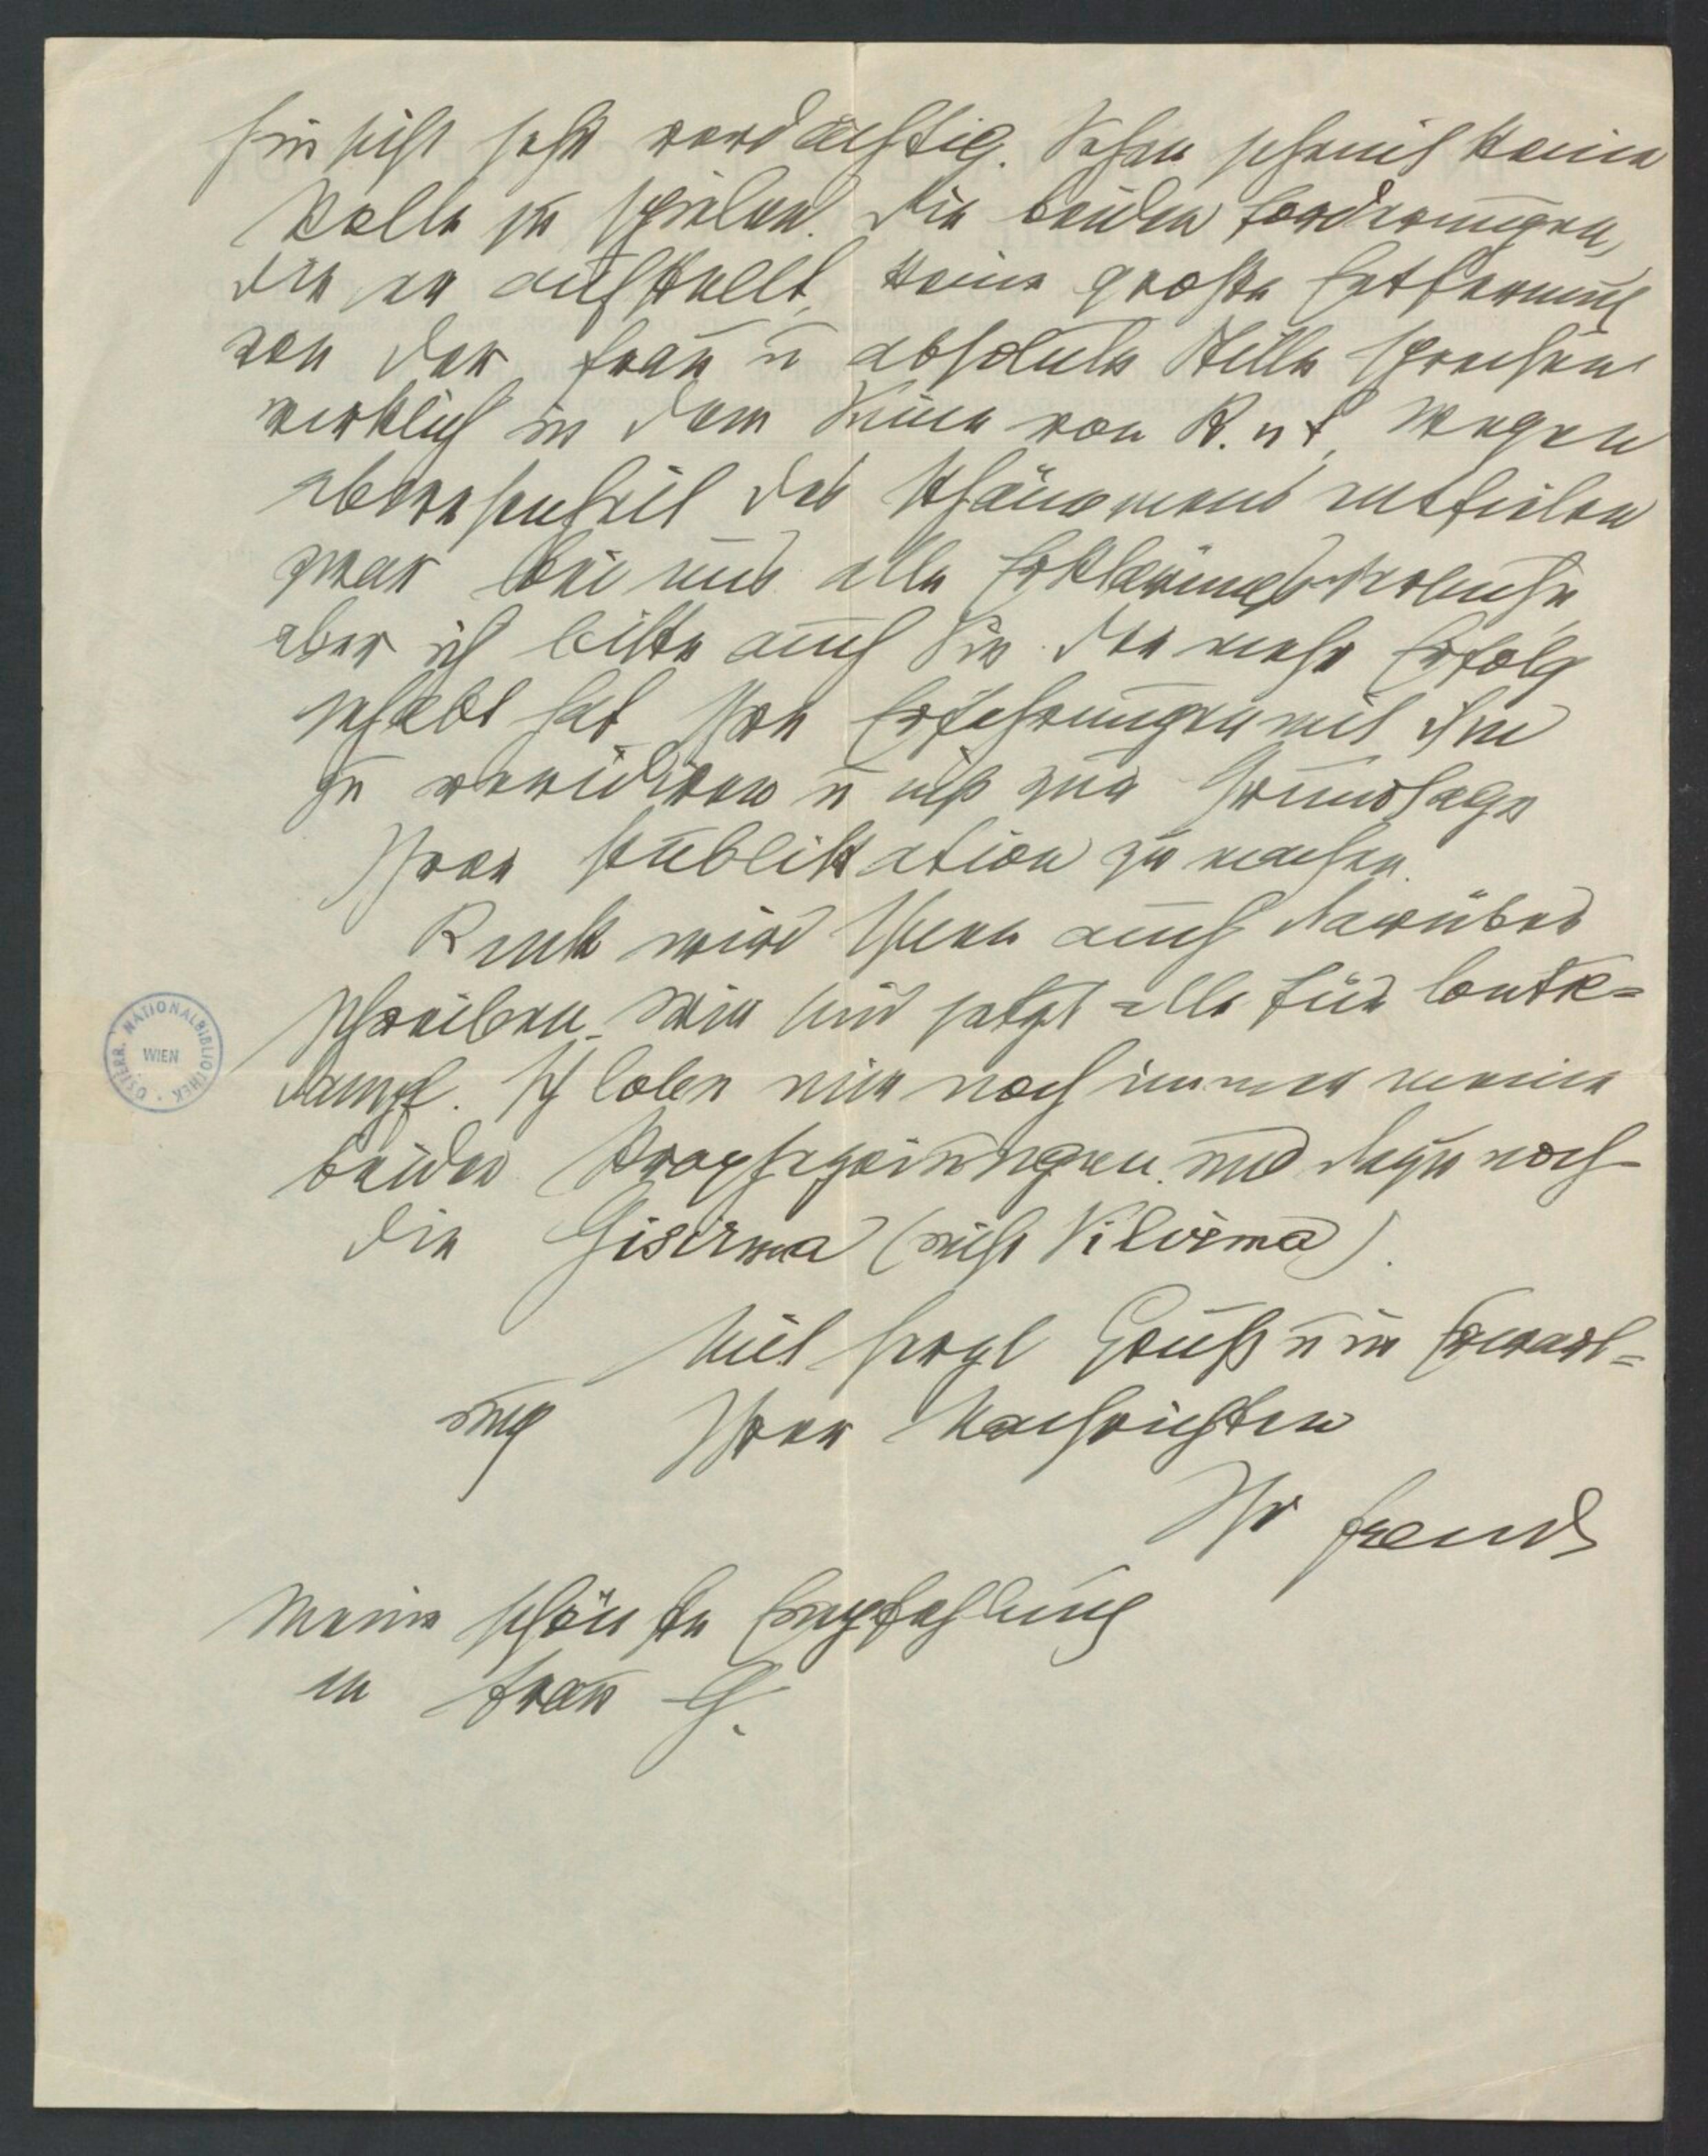 Hinsicht sehr verdächtig. Sehen scheint keine
Rolle zu spielen. Die beiden Forderungen,
die er aufstellt, keine große Entfernung
von der Frau u absolute Stille sprechen
wirklich in dem Sinne von R. u S. Wegen
Abwesenheit des Phänomens entfielen
zwar bei uns alle Erklärungsversuche,
aber ich bitte auch Sie der mehr Erfolg
gehabt hat Ihre Erfahrungen mit ihm
zu revidiren u nicht zur Grundlage
Ihrer Publikation zu machen.
Rank wird Ihnen auch darüber
schreiben. Wir sind jetzt alle für
dampf. Ich lobe mir noch immer meine
beiden Prophezeiungen und dazu noch
die Gisirma (nicht Vilirma).
Mit herzl Gruß u in Erwart=
ung Ihrer Nachrichten
Ihr Freud
Meine schönste Empfehlung
an Frau G.
ÖSTERR. NATIONALBIBLIOTHEK
WIEN